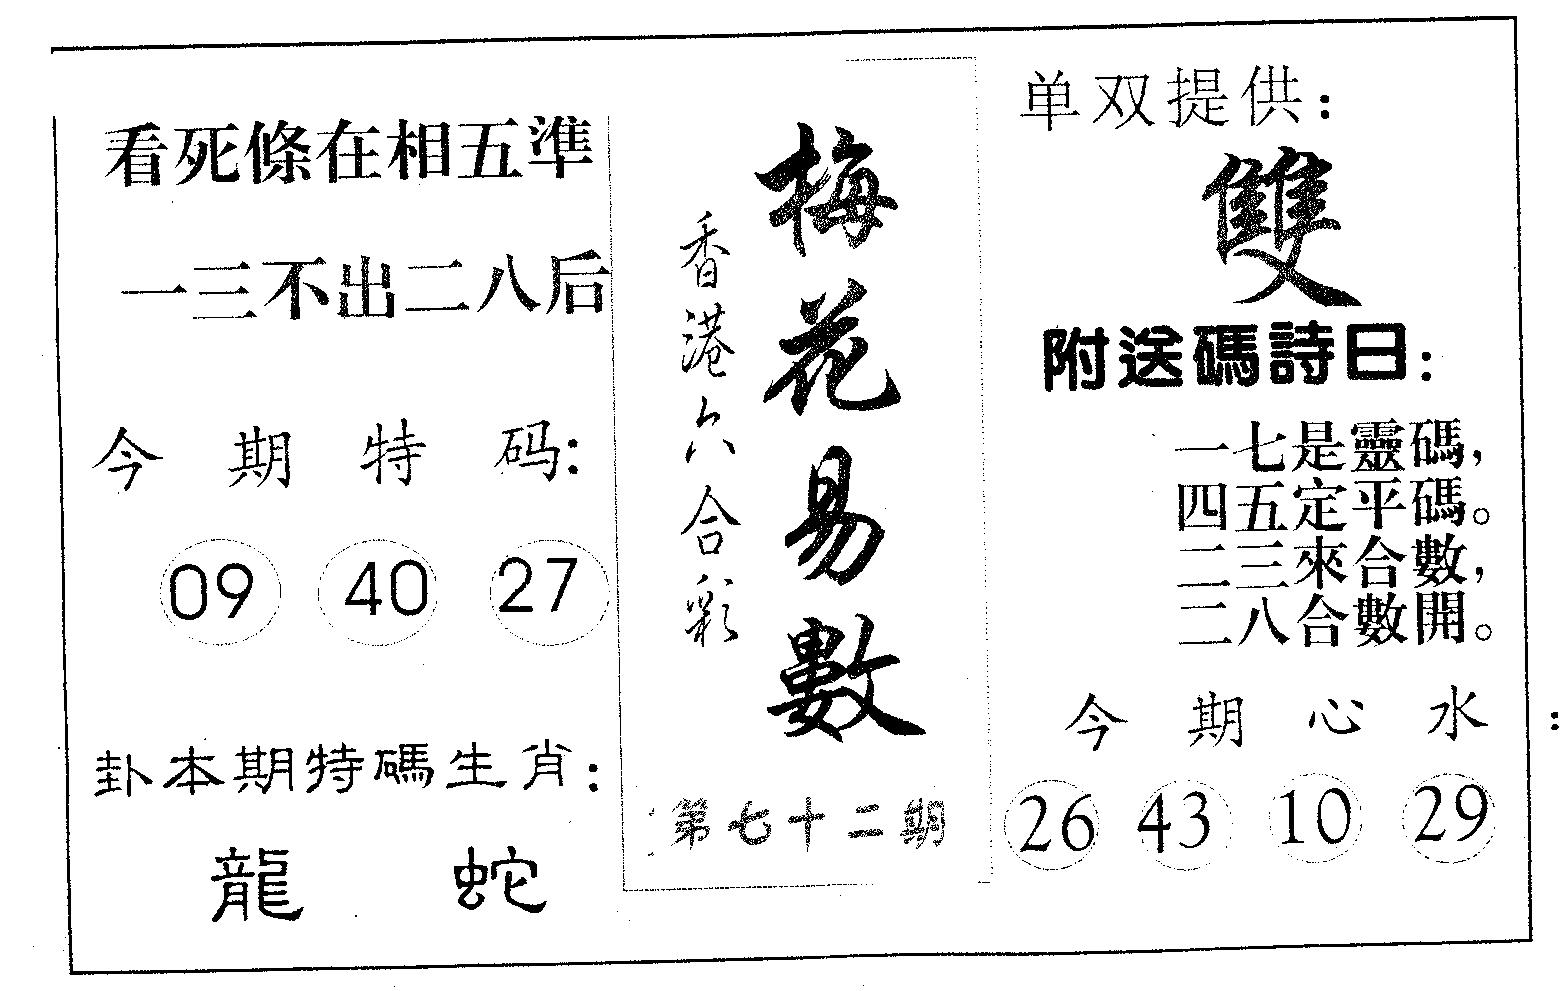 看死條在相五準
一三不出二八后
今期特码:
09 40 27
卦本期特碼生肖:
龍 蛇
梅花易數
香港六合彩
第七十二期
单双提供:
雙
附送碼詩曰:
一七是靈碼,
四五定平碼。
二三來合數,
二八合數開。
今期心水:
26 43 10 29